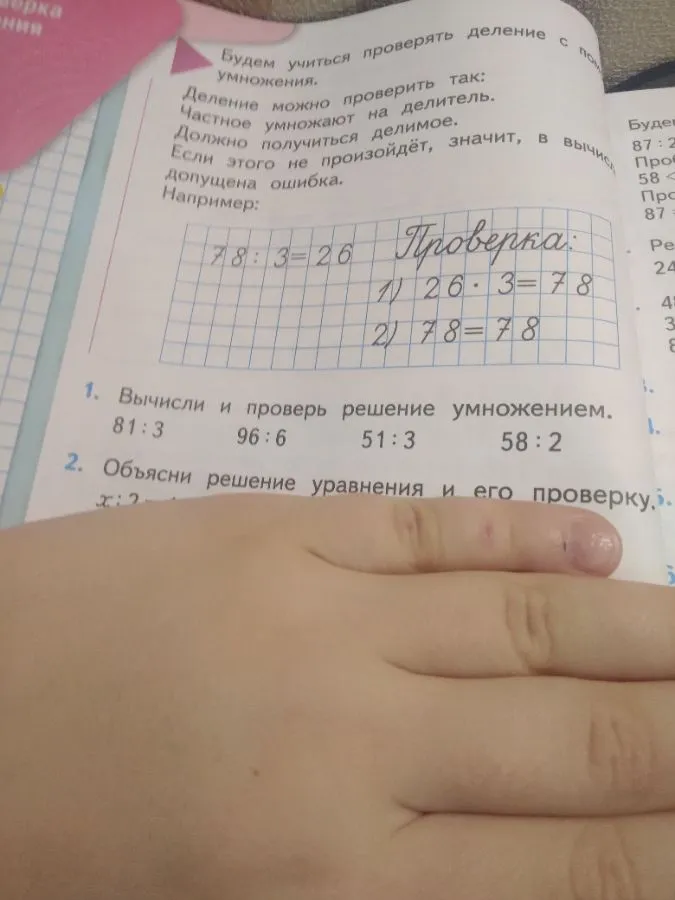 Будем учиться проверять деление с
умножения.
Деление можно проверить так:
Частное умножают на делитель.
Должно получиться делимое.
Если этого не произойдёт, значит, в
допущена ошибка.
Например:
78 : 3 = 26
Проверка:
1) 26 · 3 = 78
2) 78 = 78
1. Вычисли и проверь решение умножением.
81 : 3 96 : 6 51 : 3 58 : 2
2. Объясни решение уравнения и его проверку.
x : 2
87 : 2
58 <
87
24